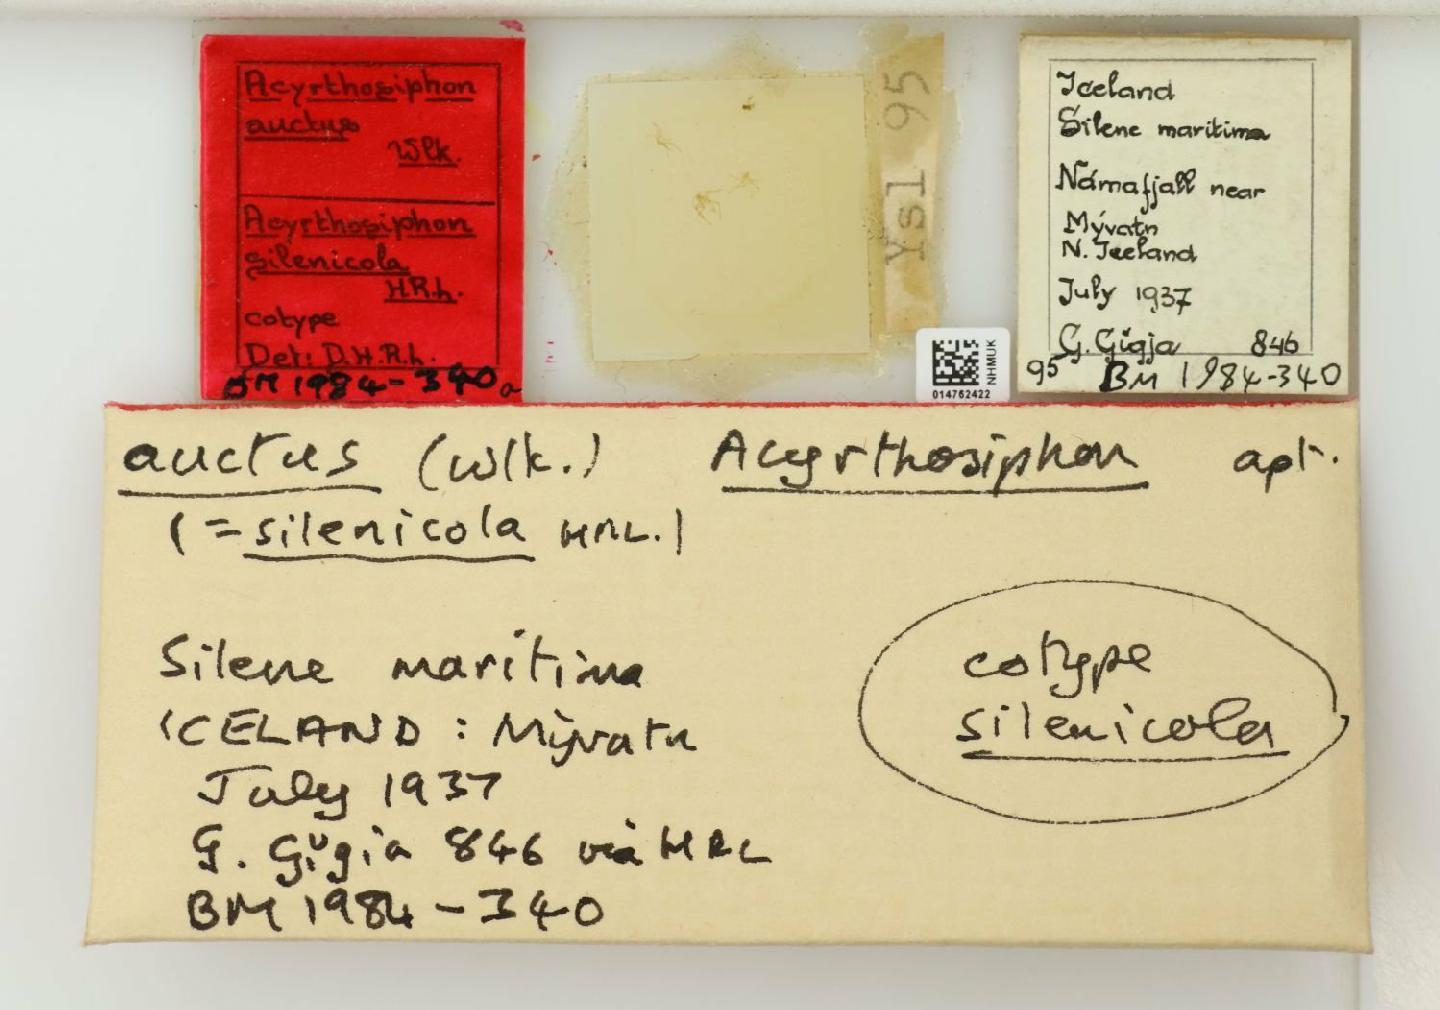 Acyrthosiphon
auctus
Wlk.
Acyrthosiphon
silenicola
H.R.L.
cotype
Det: D.H.R.L.
BM 1984-340a
Ysl 95
NHMUK
014762422
Iceland
Silene maritima
Námafjall near
Mývatn
N. Iceland
July 1937
G. Gígja 846
95 BM 1984-340
auctus (Wlk.) Acyrthosiphon apt.
(=silenicola HRL.)
Silene maritima
ICELAND: Mývatn
July 1937
G. Gígia 846 via HRL
BM 1984-340
cotype
silenicola